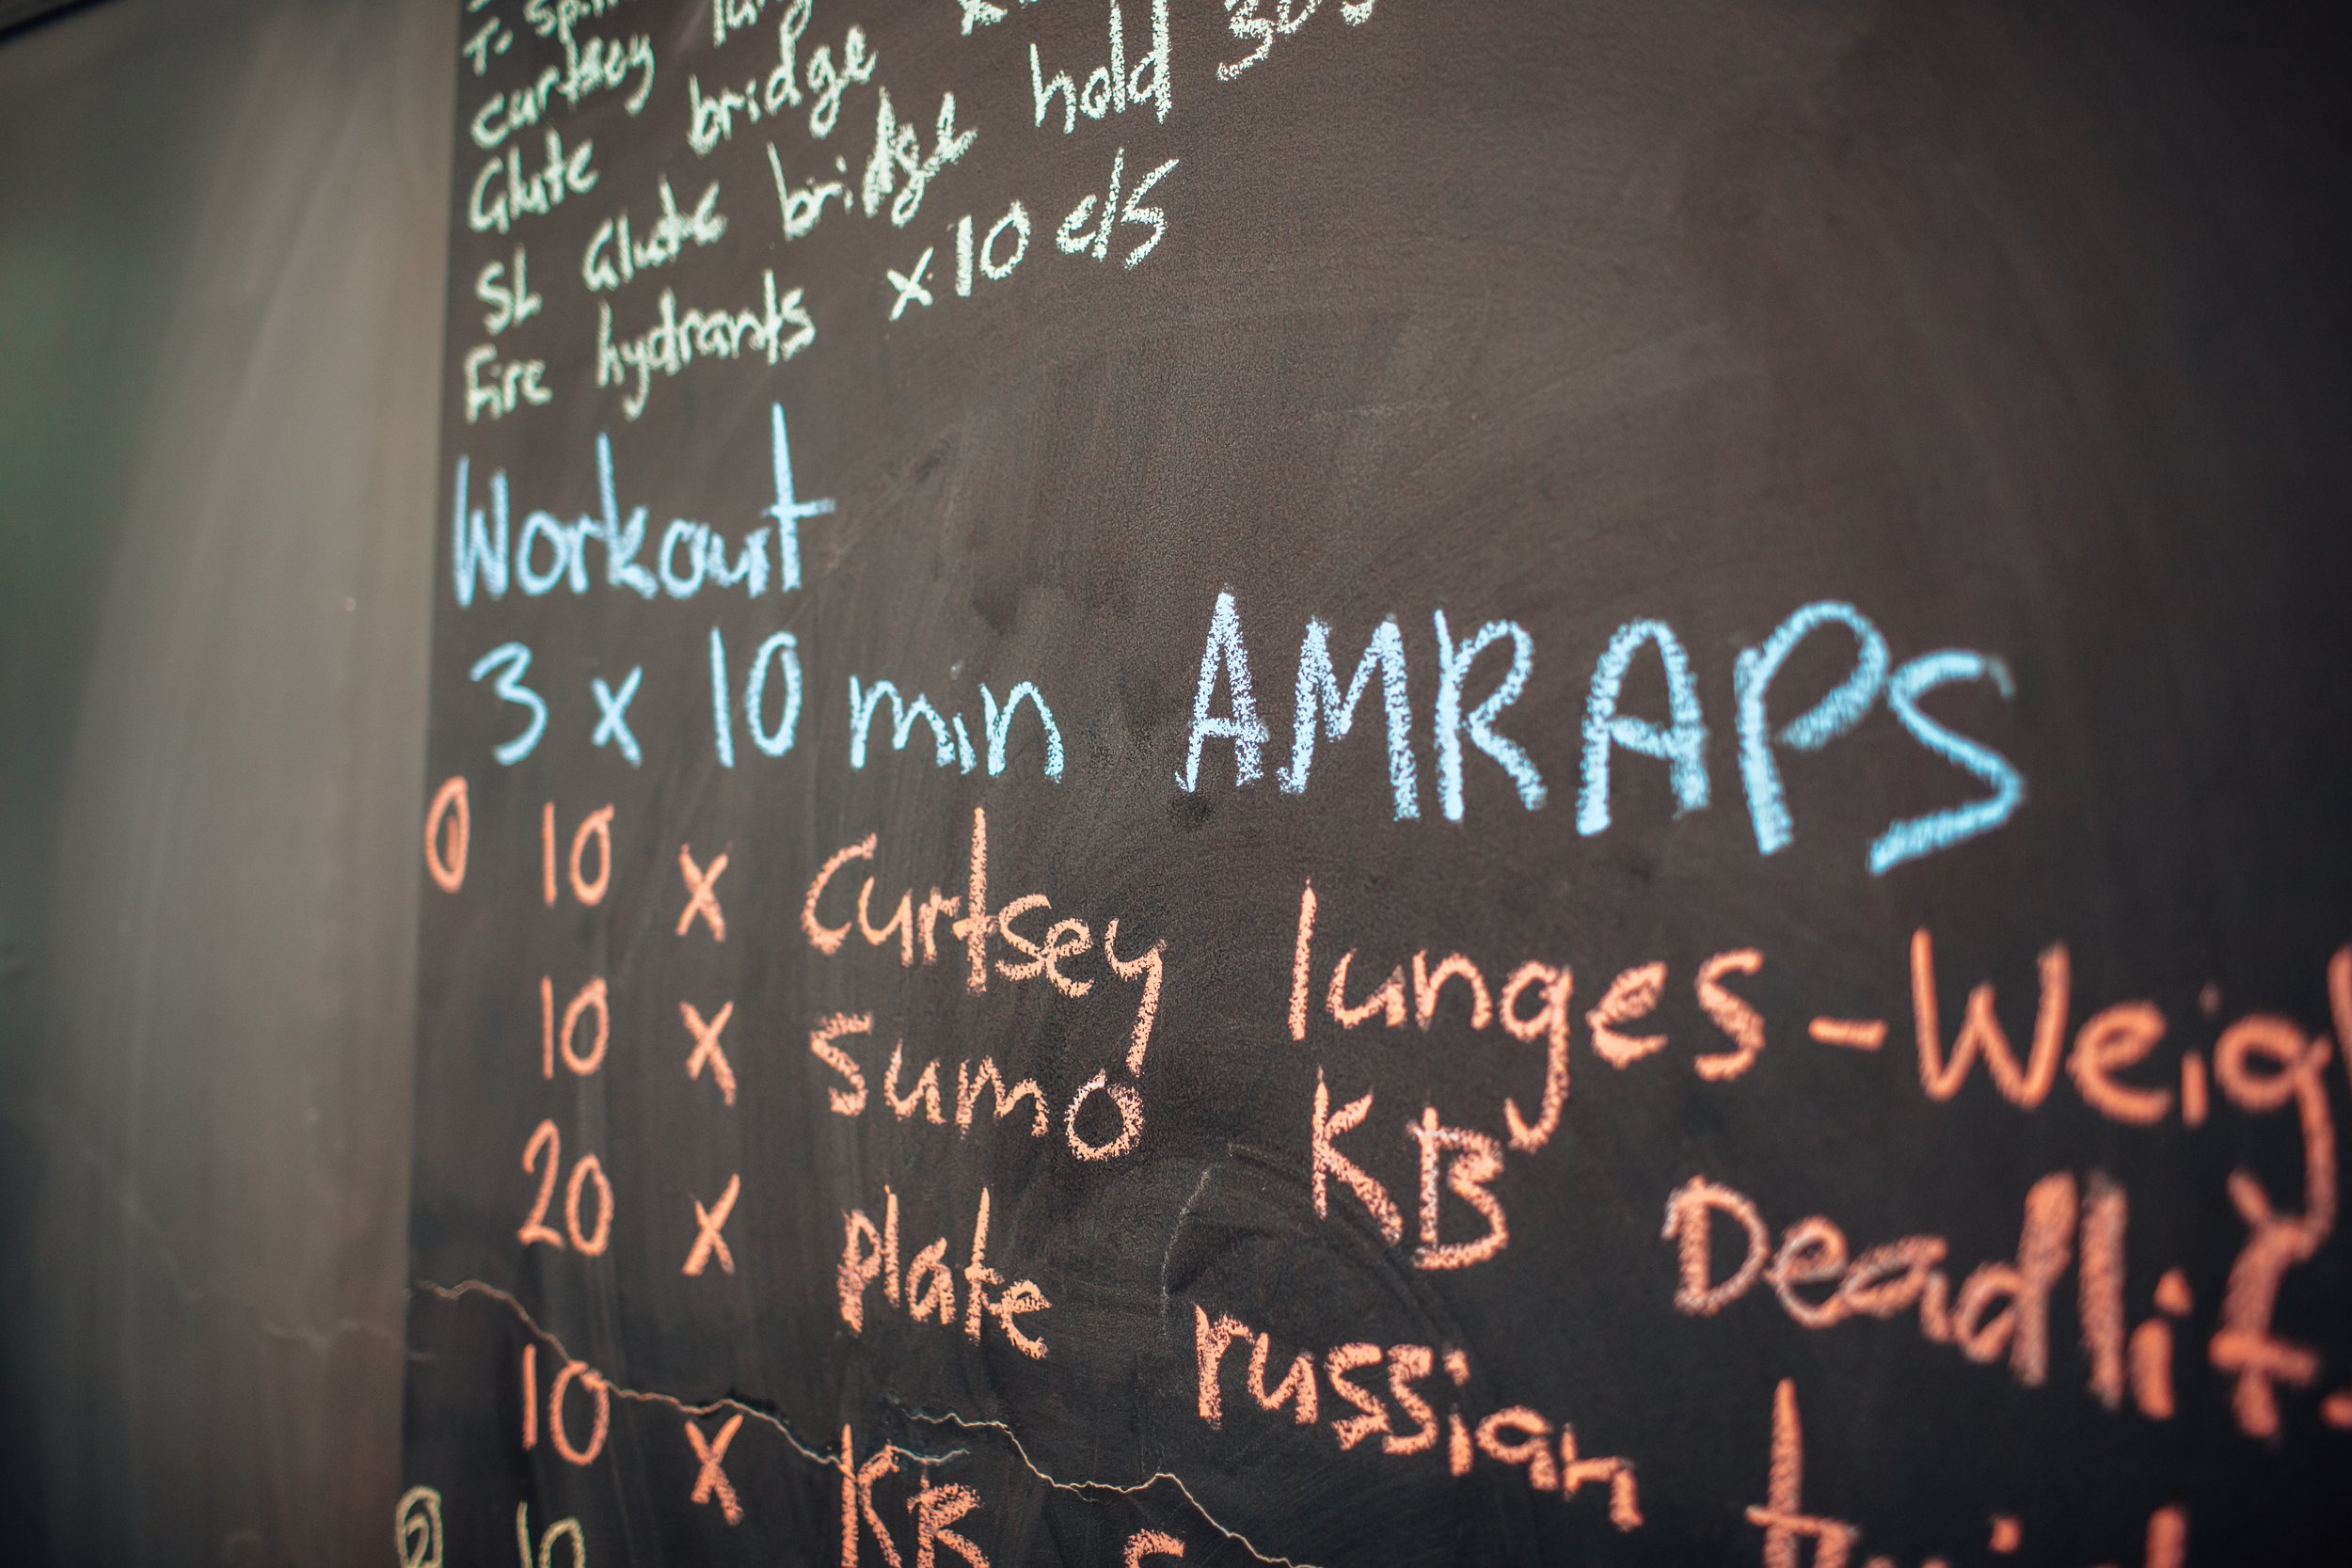 T- Spin
curtsey
Glute bridge
SL Glute bridge hold 30s
Fire hydrants x10 e/s
Workout
3 x 10 min AMRAPS
10 x Curtsey lunges - Weig
10 x Sumo KB Deadlift
20 x plate russian
10 x KB
10